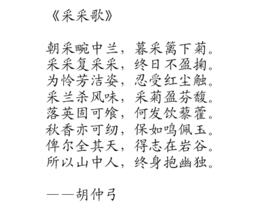 《采采歌》
朝采畹中兰，暮采篱下菊。
采采复采采，终日不盈掬。
为怜芳洁姿，忍受红尘触。
采兰杀风味，采菊盈芬馥。
落英固可飡，何发饮藜藿。
秋香亦可纫，保如鸣佩玉。
俾尔全其天，得志在岩谷。
所以山中人，终身抱幽独。
——胡仲弓